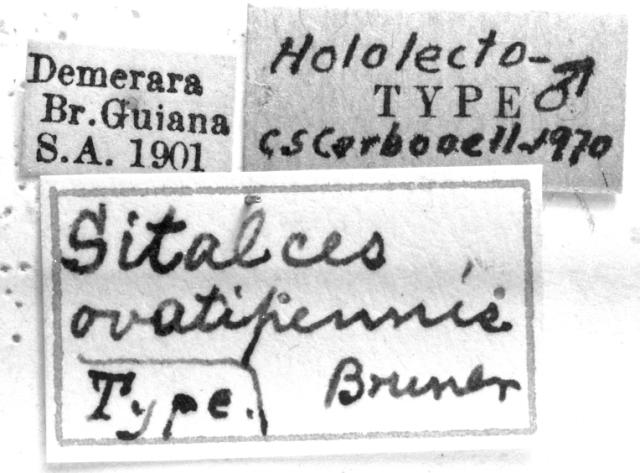 Demerara
Br. Guiana
S.A. 1901
Hololecto-
TYPE ♂
CSCarbonell.1970
Sitalces
ovatipennis
Type. Bruner